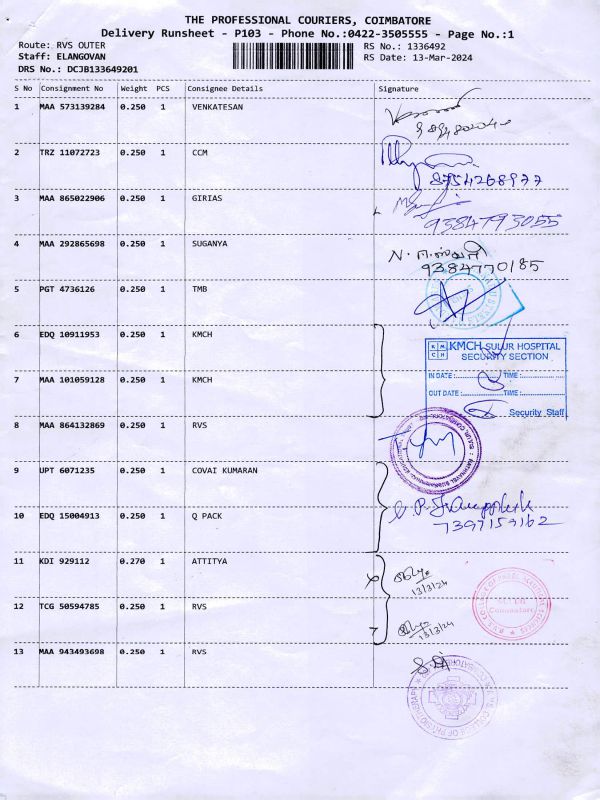 THE PROFESSIONAL COURIERS, COIMBATORE
Delivery Runsheet - P103 - Phone No.:0422-3505555 - Page No.:1
Route: RVS OUTER
RS No.: 1336492
Staff: ELANGOVAN
RS Date: 13-Mar-2024
DRS No.: DCJB133649201
S No Consignment No Weight PCS Consignee Details Signature
1 MAA 573139284 0.250 1 VENKATESAN
2 TRZ 11072723 0.250 1 CCM
8754268977
3 MAA 865022906 0.250 1 GIRIAS
9384793055
4 MAA 292865698 0.250 1 SUGANYA
9384770185
5 PGT 4736126 0.250 1 TMB
6 EDQ 10911953 0.250 1 KMCH
KMCH SULUR HOSPITAL
SECURITY SECTION
7 MAA 101059128 0.250 1 KMCH
IN DATE: TIME:
OUT DATE: TIME:
Security Staff
8 MAA 864132869 0.250 1 RVS
9 UPT 6071235 0.250 1 COVAI KUMARAN
10 EDQ 15004913 0.250 1 Q PACK
7397159162
11 KDI 929112 0.270 1 ATTITYA
13/3/24
12 TCG 50594785 0.250 1 RVS
13/3/24
Coimbatore
13 MAA 943493698 0.250 1 RVS